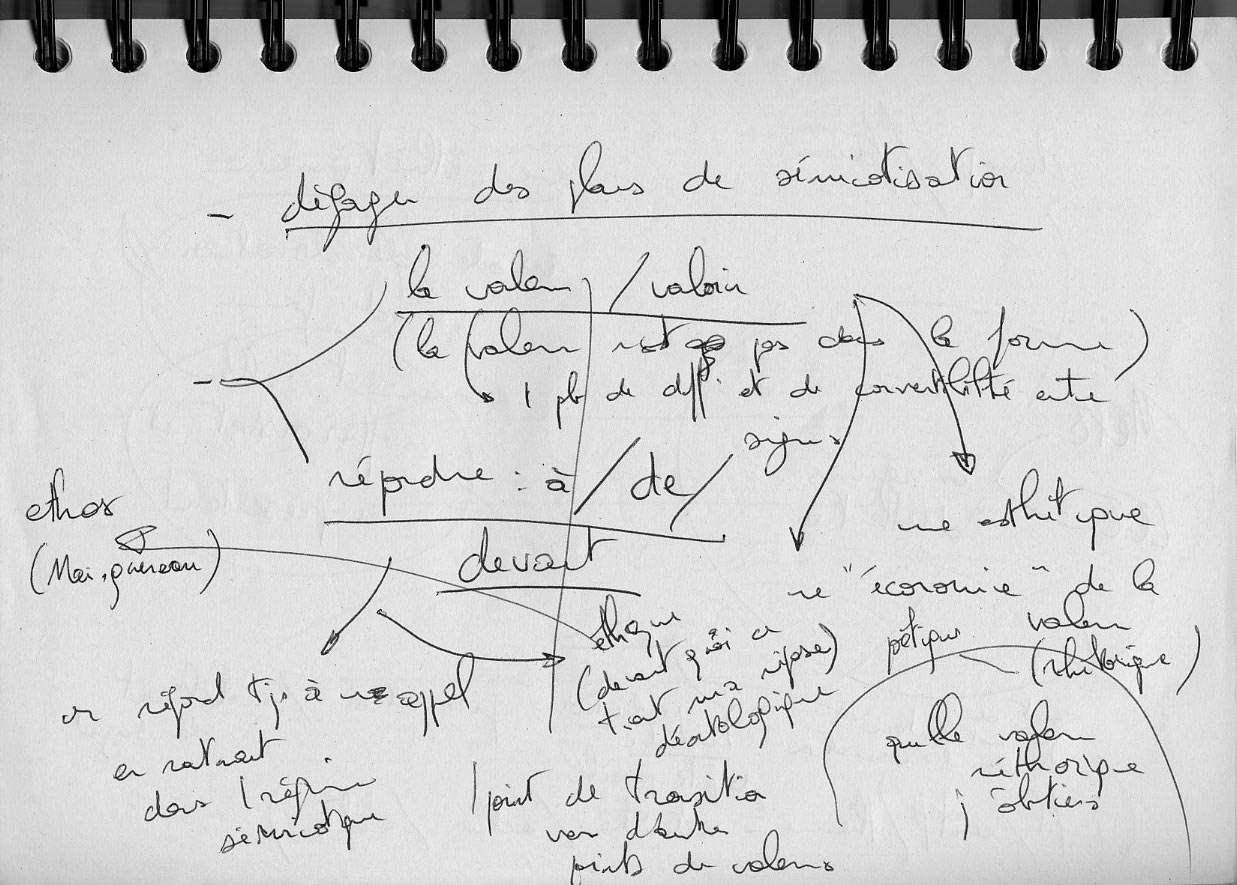 - dégager des plans de sémiotisation
la valeur / valoir
(la valeur n'est pas dans la forme)
1 pb de diff. et de convertibilité entre
signes
- répondre : à / de /
devant
ethos
(Maingueneau)
une esthétique
une "économie" de la
valeur
(rhétorique)
poétique
éthique
(devant quoi
ma réponse)
déontologique
on répond tjs à un appel
en entrant
dans 1 régime
sémiotique
1 point de transition
vers d'autres
points de valeurs
quelle valeur
réthorique
j'obtiens